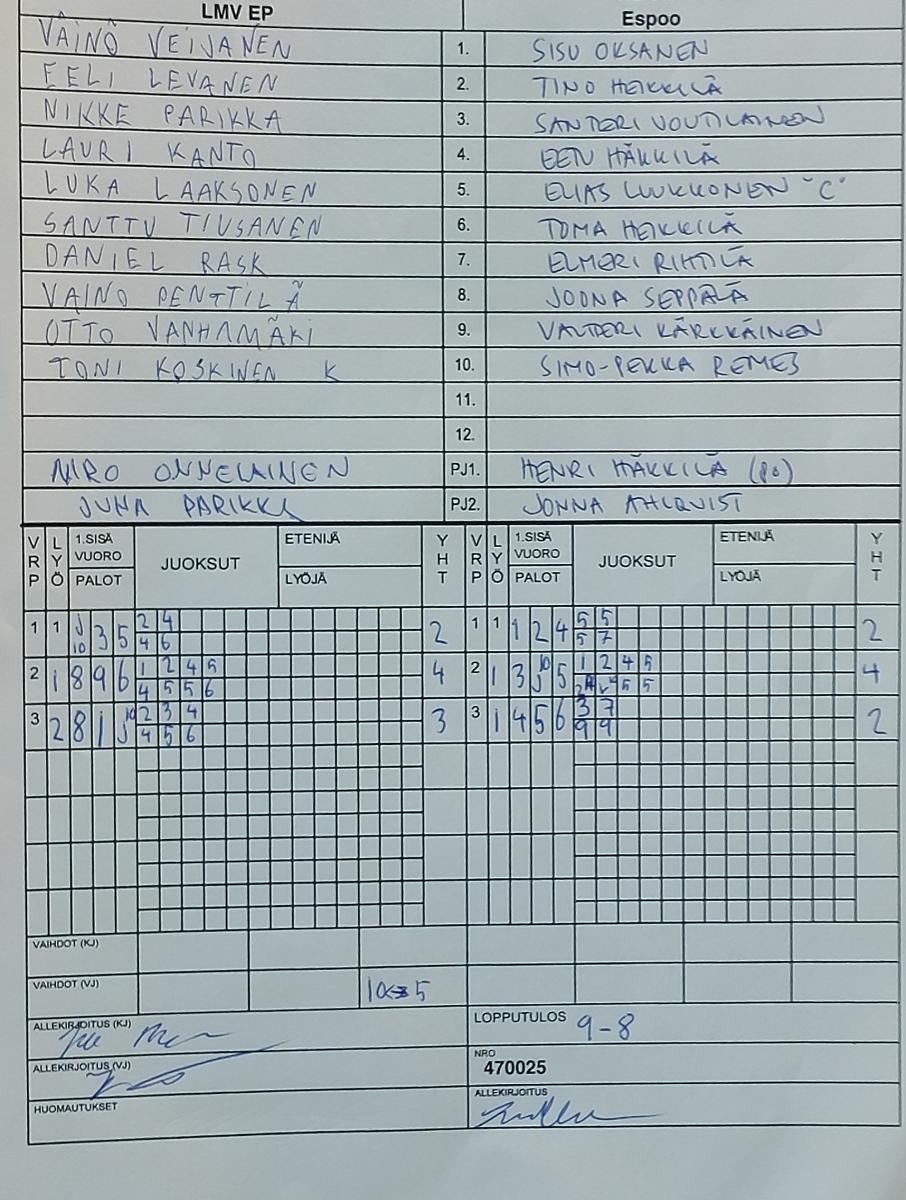 LMV EP Espoo
VÄINÖ VEIJANEN 1. SISU OKSANEN
EELI LEVANEN 2. TINO HEIKKILÄ
NIKKE PARIKKA 3. SANTERI VOUTILAINEN
LAURI KANTO 4. EETU HÄKKILÄ
LUKA LAAKSONEN 5. ELIAS LUUKKONEN "C"
SANTTU TIUSANEN 6. TOMA HEIKKILÄ
DANIEL RASK 7. ELMERI RIHTILÄ
VÄINÖ PENTTILÄ 8. JOONA SEPPÄLÄ
OTTO VANHAMÄKI 9. VALTTERI KÄRKKÄINEN
TONI KOSKINEN K 10. SIMO-PEKKA REMES
11.
12.
NIRO ONNELAINEN PJ1. HENRI HÄKKILÄ (po)
JUHA PARIKKA PJ2. JONNA AHLQVIST
VRP LYÖ 1.SISÄ VUORO PALOT JUOKSUT ETENIJÄ LYÖJÄ YHT VRP LYÖ 1.SISÄ VUORO PALOT JUOKSUT ETENIJÄ LYÖJÄ YHT
1 1 J10 3 5 2 4 2 1 1 1 2 4 5 5 2
4 6 5 7
2 1 8 9 6 1 2 4 5 4 2 1 3 J10 5 1 2 4 5 4
4 5 5 6 5 5
3 2 8 1 J10 2 3 4 3 3 1 4 5 6 3 7 2
4 5 6 9 9
VAIHDOT (KJ)
VAIHDOT (VJ) 10 5
ALLEKIRJOITUS (KJ) LOPPUTULOS 9-8
ALLEKIRJOITUS (VJ) NRO 470025
HUOMAUTUKSET ALLEKIRJOITUS